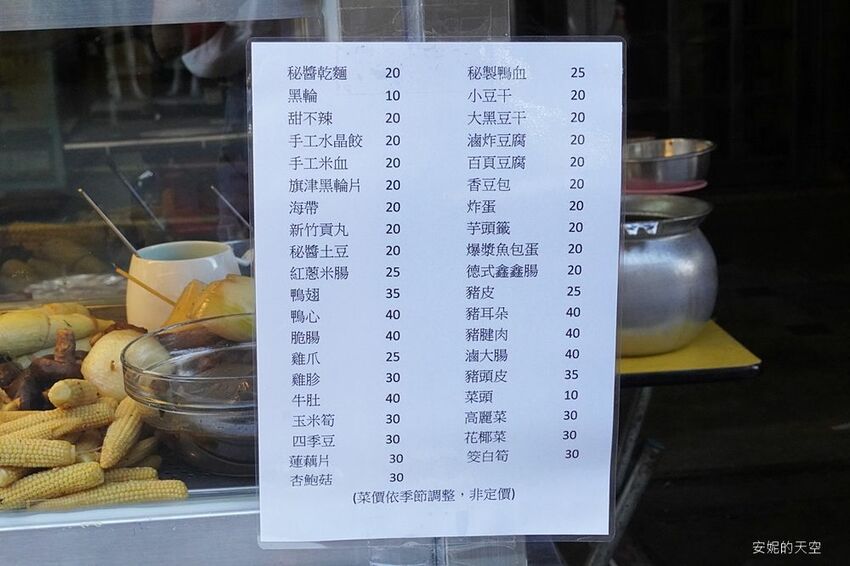 秘醬乾麵 20 秘製鴨血 25
黑輪 10 小豆干 20
甜不辣 20 大黑豆干 20
手工水晶餃 20 滷炸豆腐 20
手工米血 20 百頁豆腐 20
旗津黑輪片 20 香豆包 20
海帶 20 炸蛋 20
新竹貢丸 20 芋頭籤 20
秘醬土豆 20 爆漿魚包蛋 20
紅蔥米腸 25 德式鑫鑫腸 20
鴨翅 35 豬皮 25
鴨心 40 豬耳朵 40
脆腸 40 豬腱肉 40
雞爪 25 滷大腸 40
雞胗 30 豬頭皮 35
牛肚 40 菜頭 10
玉米筍 30 高麗菜 30
四季豆 30 花椰菜 30
蓮藕片 30 筊白筍 30
杏鮑菇 30
(菜價依季節調整，非定價)
安妮的天空